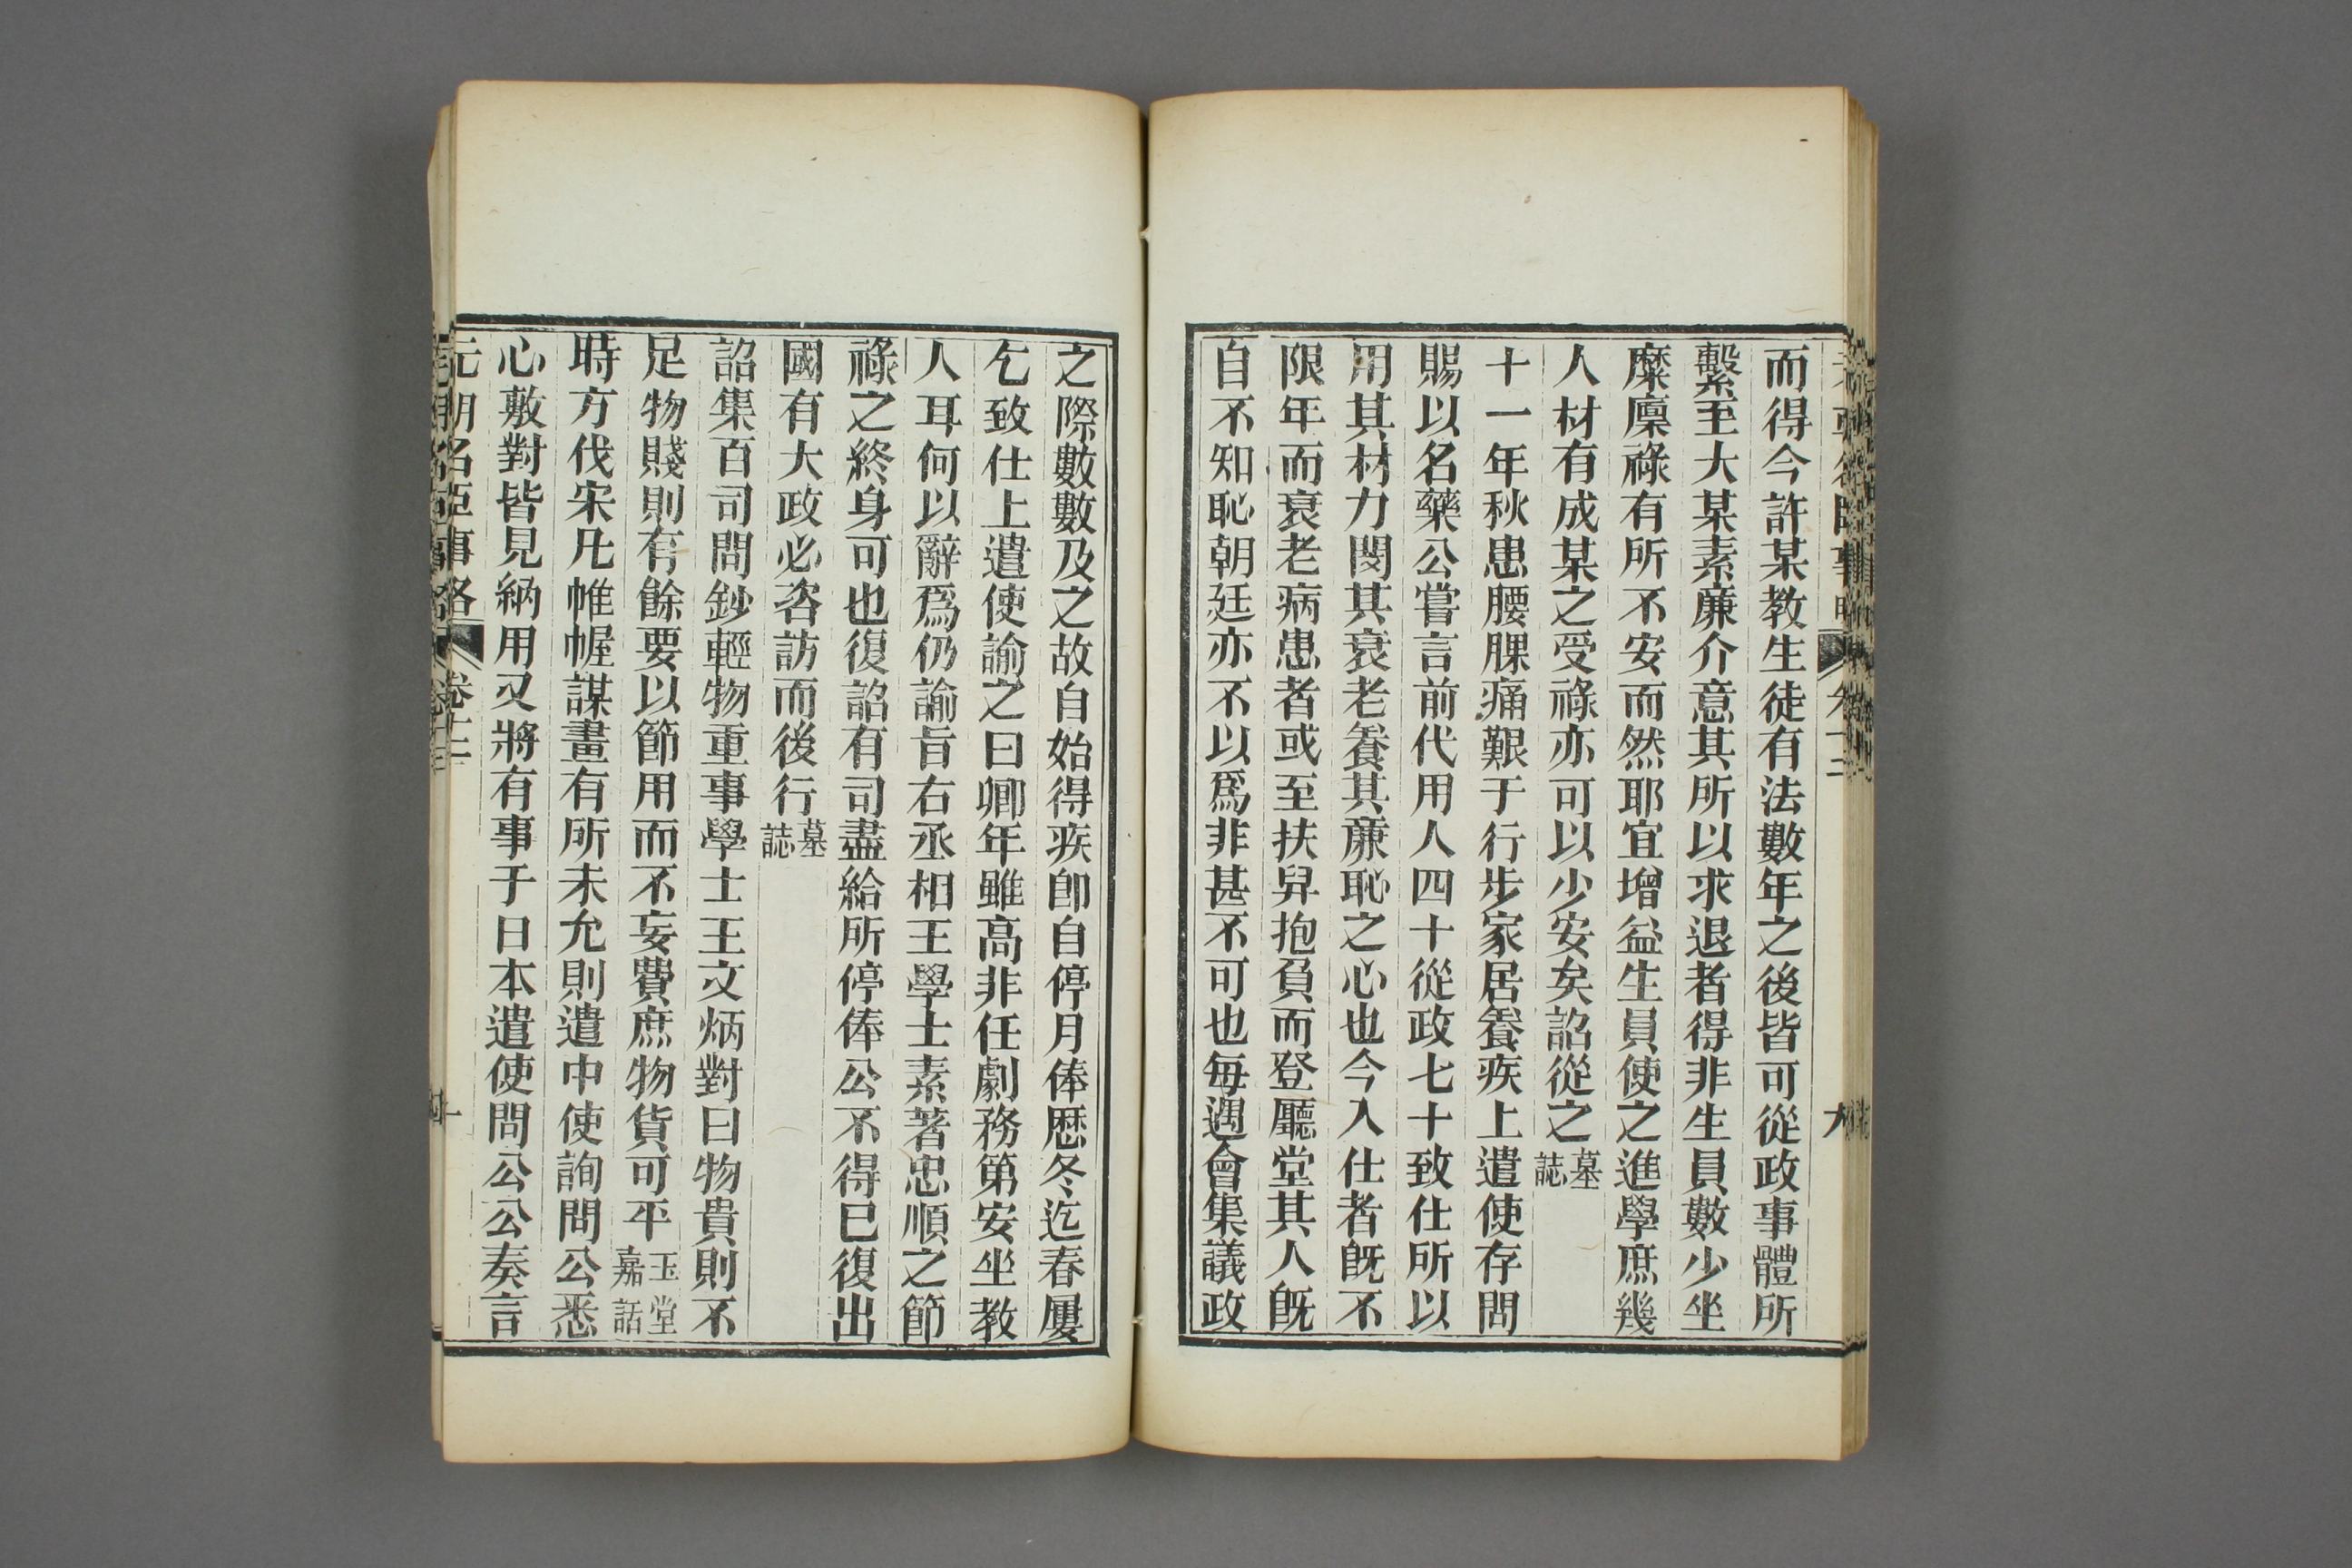 而得今許某教生徒有法數年之後皆可從政事體所
繫至大某素廉介意其所以求退者得非生員數少坐
糜廩祿有所不安而然耶宜增益生員使之進學庶幾
人材有成某之受祿亦可以少安矣詔從之墓誌
十一年秋患腰腂痛艱于行步家居養疾上遣使存問
賜以名藥公嘗言前代用人四十從政七十致仕所以
用其材力閔其衰老養其廉恥之心也今入仕者旣不
限年而衰老病患者或至扶舁抱負而登廳堂其人旣
自不知恥朝廷亦不以爲非甚不可也每遇會集議政
之際數數及之故自始得疾卽自停月俸歷冬迄春屢
乞致仕上遣使諭之曰卿年雖高非任劇務第安坐教
人耳何以辭爲仍諭旨右丞相王學士素著忠順之節
祿之終身可也復詔有司盡給所停俸公不得已復出
國有大政必咨訪而後行墓誌
詔集百司問鈔輕物重事學士王文炳對曰物貴則不
足物賤則有餘要以節用而不妄費庶物貨可平玉堂嘉話
時方伐宋凡帷幄謀畫有所未允則遣中使詢問公悉
心敷對皆見納用又將有事于日本遣使問公公奏言
元朝名臣事略 卷十二